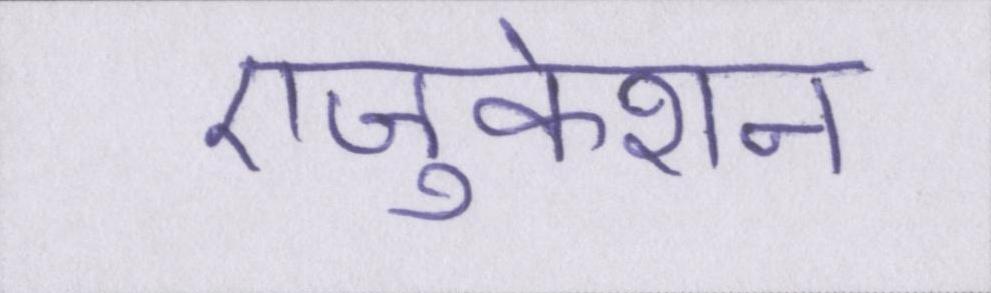 एजुकेशन